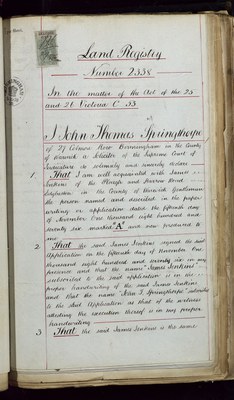 Land Registry
Number 2338
In the matter of the Act of the 25
and 26 Victoria C. 53
I John Thomas Springthorpe
of 27 Colmore Row Birmingham in the County
of Warwick a Solicitor of the Supreme Court of
Judicature do solemnly and sincerely declare
1. That I am well acquainted with James
Jenkins of the Plough and Harrow Road
Edgbaston in the County of Warwick Gentleman
the person named and described in the paper
writing or application dated the fifteenth day
of November One thousand eight hundred and
seventy six marked "A" and now produced to
me
2 That the said James Jenkins signed the said
Application on the fifteenth day of November One
thousand eight hundred and seventy six in my
presence and that the name "James Jenkins"
subscribed to the said application is in the
proper handwriting of the said James Jenkins
and that the name "John T Springthorpe" subscribed
to the said Application as that of the witness
attesting the execution thereof is in my proper
handwriting
3 That the said James Jenkins is the same